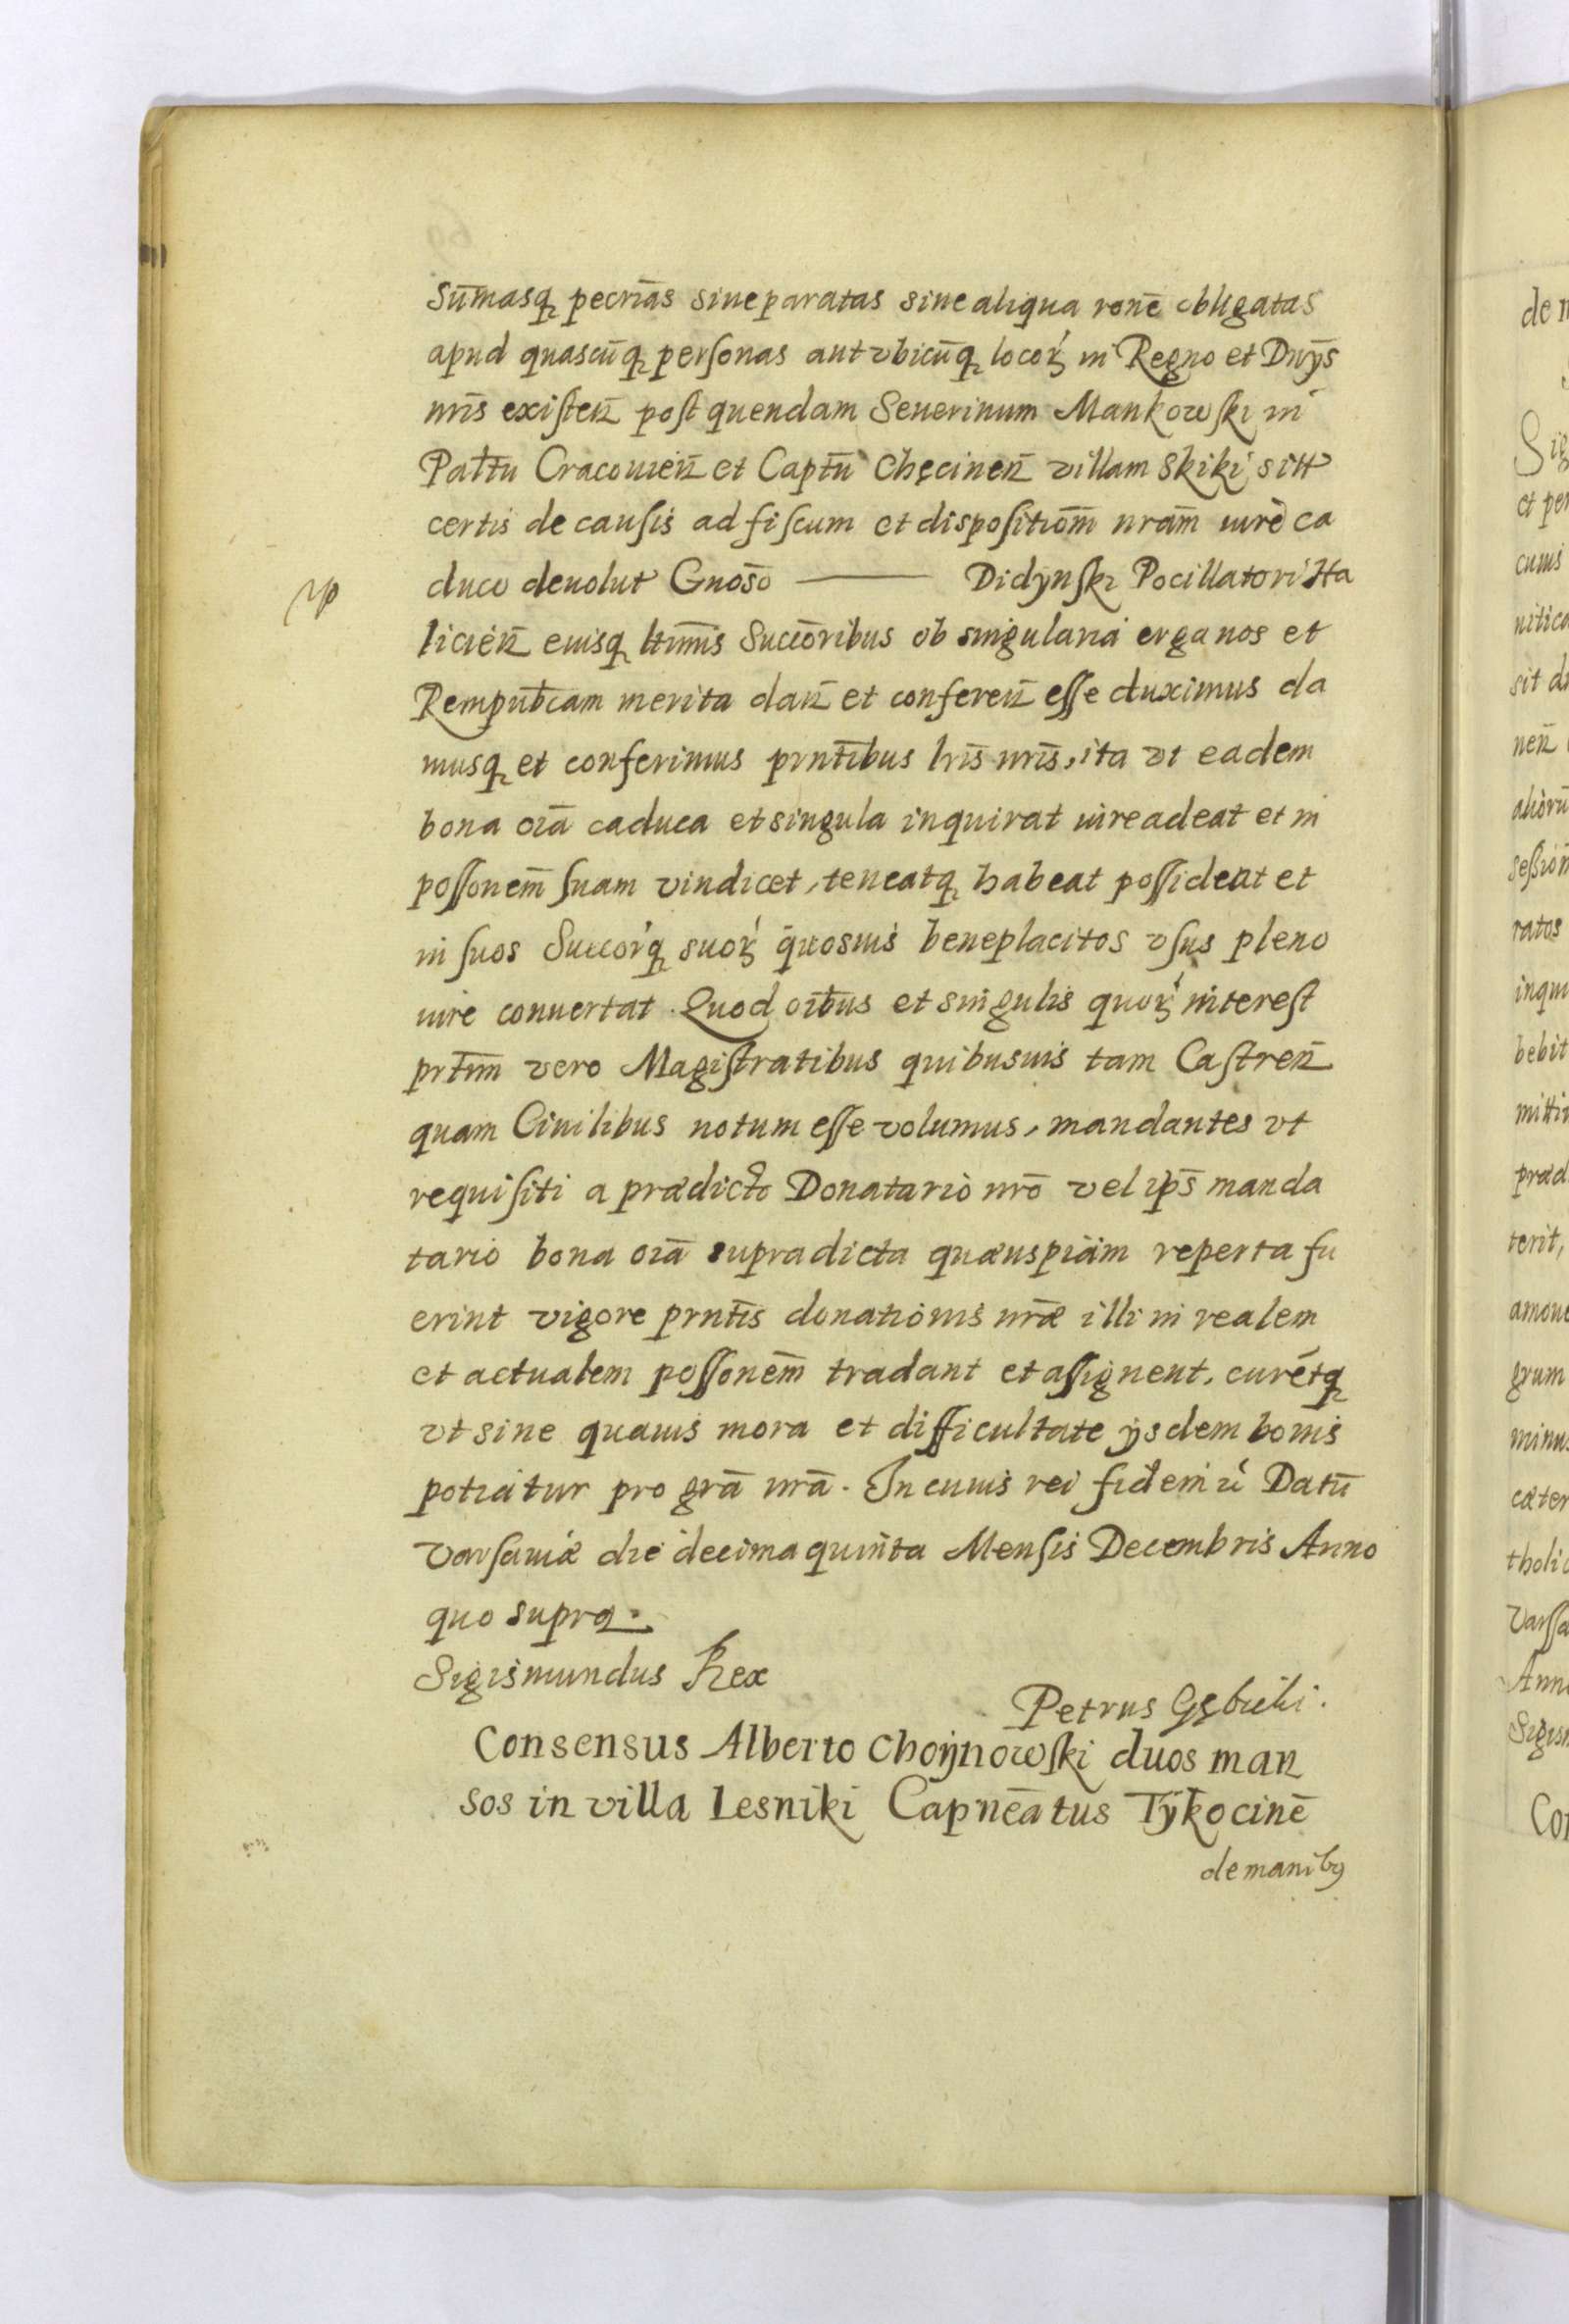 Sūmasq₃ pecnīas siue paratas siue aliqua ronē obligatas
apud quascūq₃ personas aut vbicūq₃ locoꝝ in Regno et Dnÿs
nrīs existen̄ post quendam Seuerinum Mankowski in
Pałtu Cracouień et Captū Chęcinen̄ villam Skiki sitt
certis de causis ad fiscum et dispositionēm nrām iure ca
duco deuolut Gnoso ——— Didÿnski Pocillatori Ha
licień eiusq₃ ltimīs Succōribus ob singularia erga nos et
Rempubcam merita dan̄ et conferen̄ esse duximus da
musq₃ et conferimus prntībus lrīs nrīs, ita vt eadem
bona oīa caduca et singula inquirat iure adeat et in
possonem̄ suam vindicet, teneatq₃ habeat possideat et
in suos Succorq₃ suoꝝ quosuis beneplacitos vsus pleno
iure conuertat. Quod oībus et singulis quoꝝ interest
prtīm vero Magistratibus quibusuis tam Castren̄
quam Ciuilibus notum esse volumus, mandantes vt
requisiti a prædicto Donatario nrō vel ips̄ manda
tario bona oīa supradicta quæuspiam reperta fu
erint vigore prntīs donationis nrǣ illi in realem
et actualem possonēm tradant et assignent, curētq₃
vt sine quauis mora et difficultate ÿsdem bonis
potiatur pro grā nrā. In cuius rei fidem ū Datū
Varsauiæ die decima quinta Mensis Decembris Anno
quo supra.
Sigismundus Rex
Petrus Gębicki.
Consensus Alberto Choÿnowski duos man
sos in villa Lesniki Capneātus Tÿkocinē
de manibꝫ